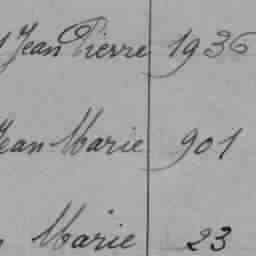 Jean Pierre 1936
Jean Marie 901
Marie 23